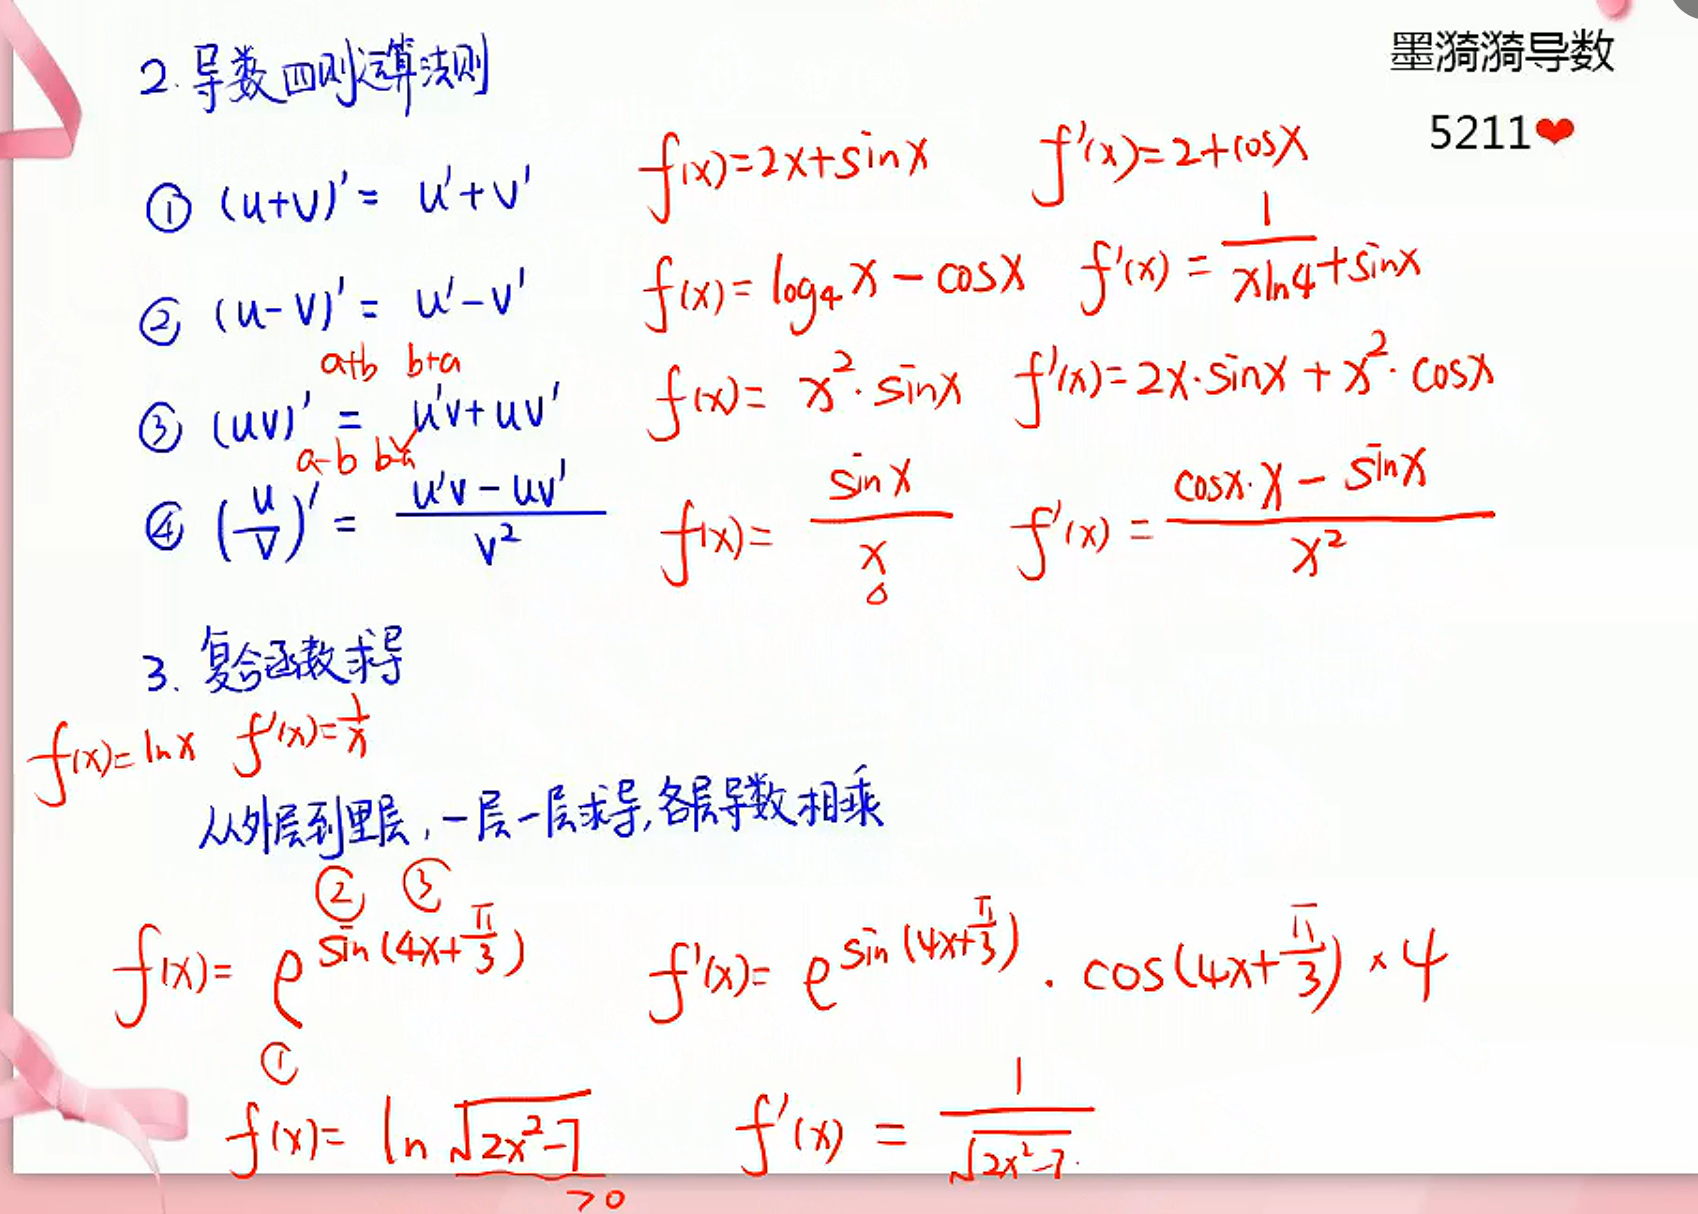 墨漪漪导数
5211❤
2.导数四则运算法则
① (u+v)′= u′+v′ f(x)=2x+sinx f′(x)=2+cosx
② (u-v)′= u′-v′ f(x)=log₄x-cosx f′(x)=1/(xln4)+sinx
a+b b+a
③ (uv)′ = u′v+uv′ f(x)= x²·sinx f′(x)=2x·sinx+x²·cosx
a-b b-a
④ (u/v)′ = (u′v-uv′)/v² f(x)= sinx/x f′(x)= (cosx·x-sinx)/x²
3.复合函数求导
f(x)=lnx f′(x)=1/x
从外层到里层,一层一层求导,各层导数相乘
② ③
f(x)= e^sin(4x+π/3) f′(x)= e^sin(4x+π/3) · cos(4x+π/3)×4
①
f(x)= ln√(2x²-7) f′(x) = 1/√(2x²-7)
>0